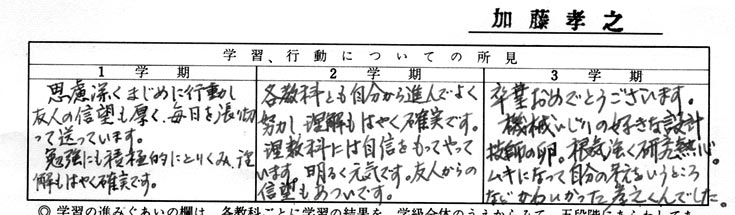 加藤孝之
学習、行動についての所見
1 学期
2 学期
3 学期
思慮深くまじめに行動し
友人の信望も厚く、毎日を張り切
って送っています。
勉強にも積極的にとりくみ、理
解もはやく確実です。
各教科とも自分から進んでよく
努力し、理解もはやく確実です。
理数科には自信をもってやって
います。明るく元気です。友人からの
信望もあついです。
卒業おめでとうございます。
機械いじりの好きな設計
技師の卵。根気強く研究熱心。
ムキになって自分の考えをいうところ
などかわいかった孝之くんでした。
◎ 学習の進みぐあいの欄は、各教科ごとに学習の結果を、学級全体のうえからみて、五段階にあらわしてあ